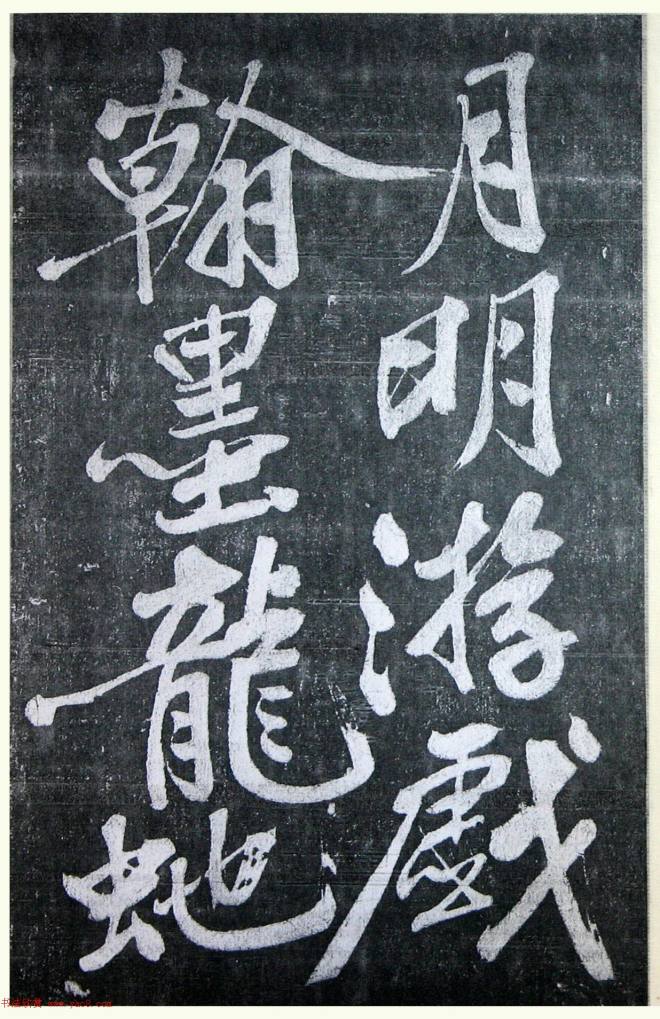 月明游戲
翰墨龍虵
书法欣赏 www.yac8.com